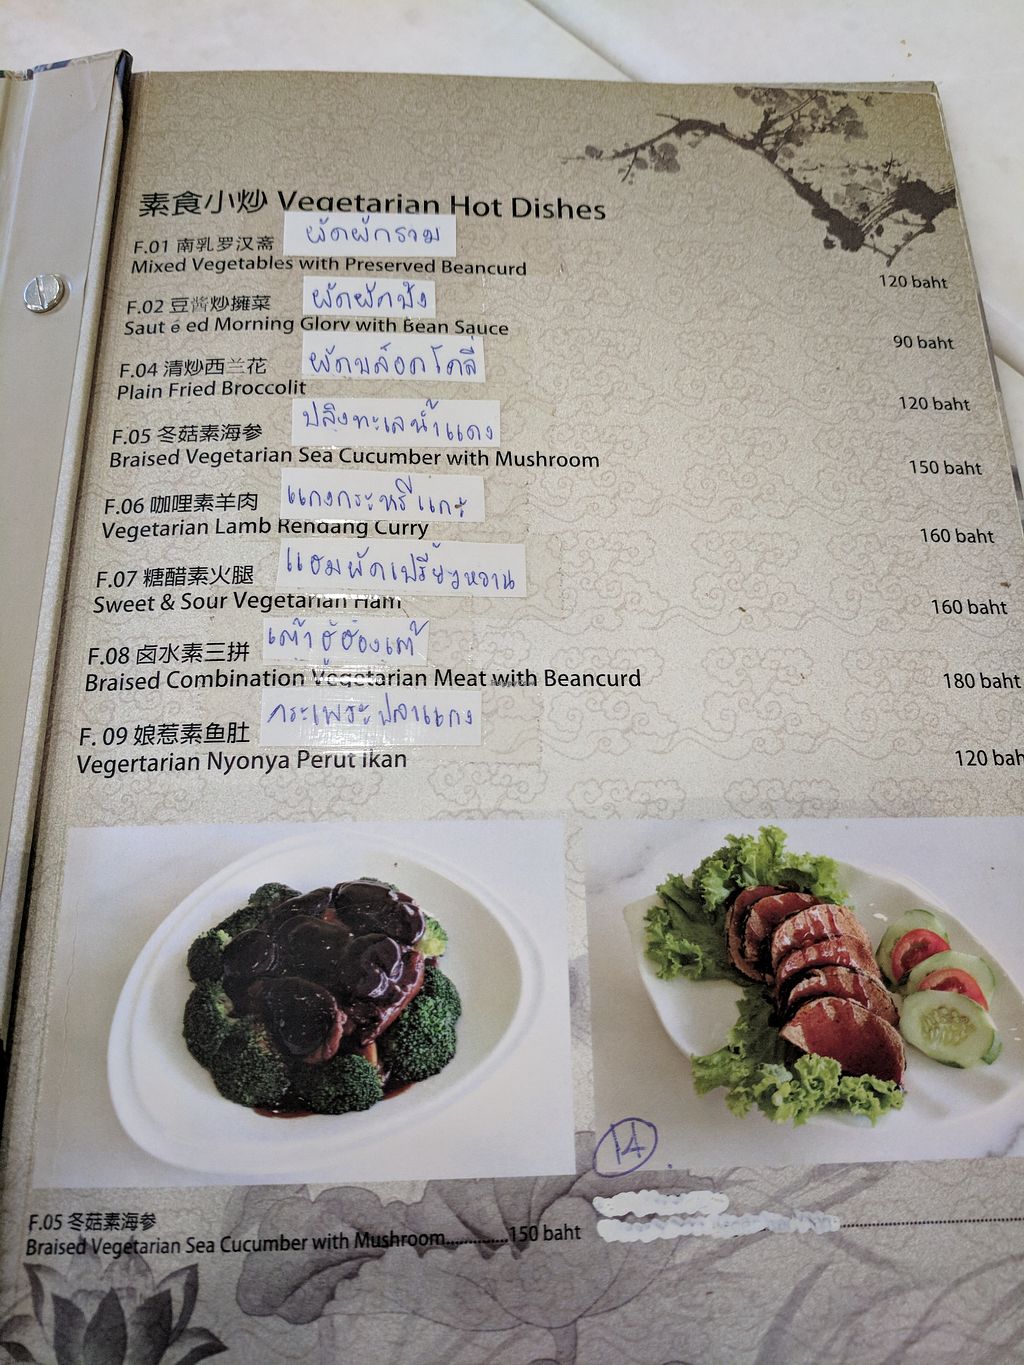 素食小炒 Vegetarian Hot Dishes
F.01 南乳罗汉斋 ผัดผักรวม
Mixed Vegetables with Preserved Beancurd
120 baht
F.02 豆酱炒擁菜 ผัดผักบุ้ง
Saut é ed Morning Glory with Bean Sauce
90 baht
F.04 清炒西兰花 ผัดบล็อคโคลี่
Plain Fried Broccolit
120 baht
F.05 冬菇素海参 ปลิงทะเลน้ำแดง
Braised Vegetarian Sea Cucumber with Mushroom
150 baht
F.06 咖哩素羊肉 แกงกระหรี่แกะ
Vegetarian Lamb Rendang Curry
160 baht
F.07 糖醋素火腿 แฮมผัดเปรี้ยวหวาน
Sweet & Sour Vegetarian Ham
160 baht
F.08 卤水素三拼 เต้าฮู้ฮ่องเต้
Braised Combination Vegetarian Meat with Beancurd
180 baht
F. 09 娘惹素鱼肚 กระเพาะปลาแกง
Vegertarian Nyonya Perut Ikan
120 bah
14
F.05 冬菇素海参
Braised Vegetarian Sea Cucumber with Mushroom..............150 baht